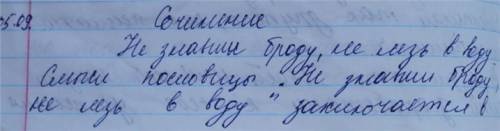 5.09. Сочинение
Не знавши броду, не лезь в воду
Смысл пословицы „Не знавши броду,
не лезь в воду" заключается в